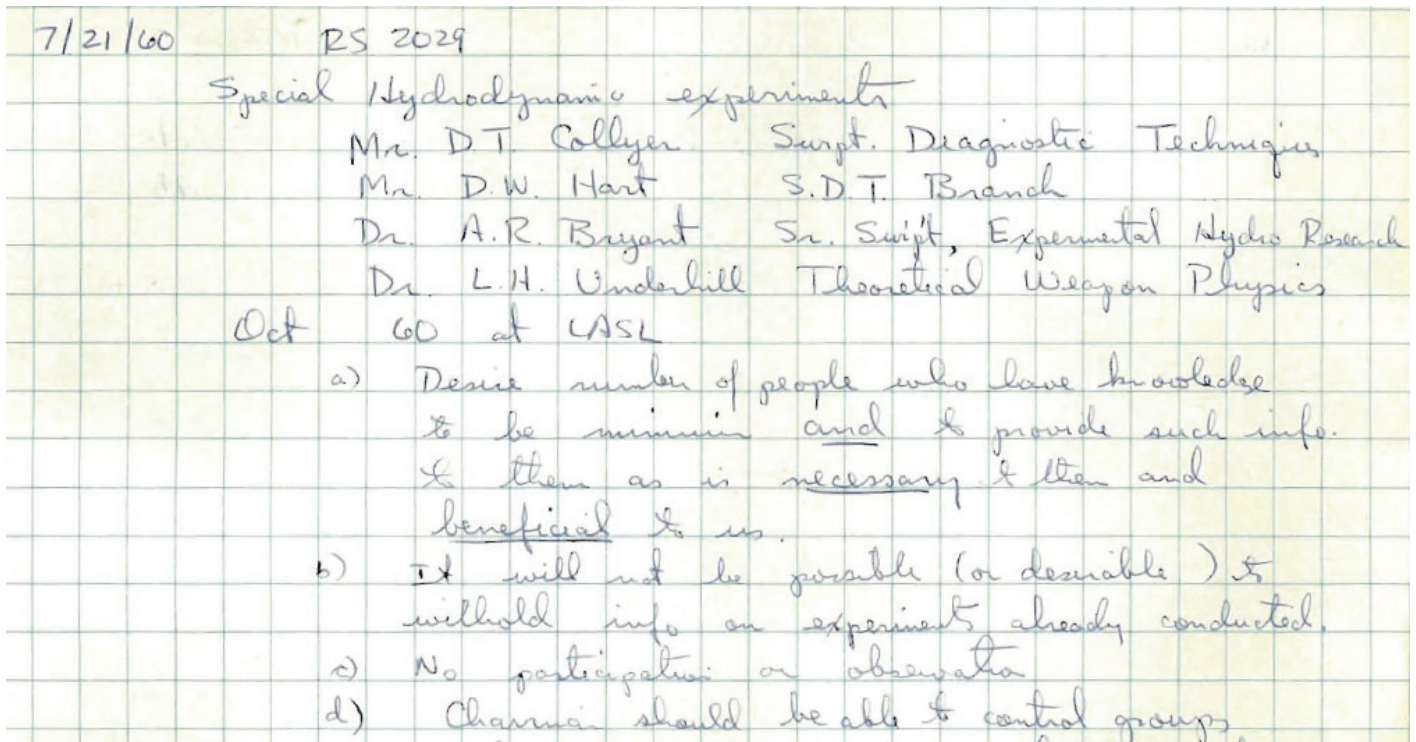 7/21/60 RS 2029
Special Hydrodynamic experiments
Mr. D.T. Collyer Surpt. Diagnostic Techniques
Mr. D.W. Hart S.D.T. Branch
Dr. A.R. Bryant Sr. Supt, Experimental Hydro Research
Dr. L.H. Underhill Theoretical Weapon Physics
Oct 60 at LASL
a) Desire number of people who have knowledge
to be minimum and to provide such info.
to them as is necessary to them and
beneficial to us.
b) It will not be possible (or desirable) to
withhold info on experiments already conducted.
c) No participation or observation
d) Chairman should be able to control groups